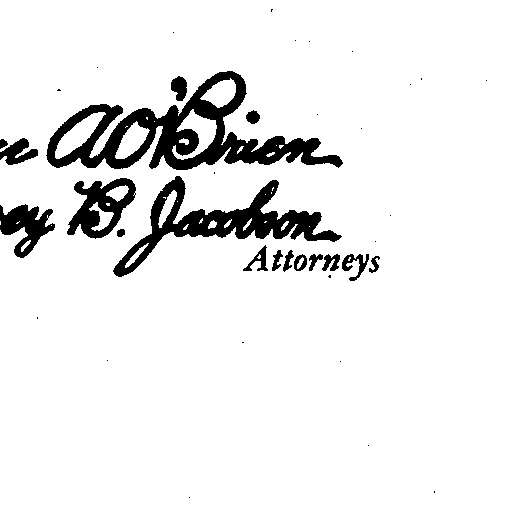 A O'Brien
B. Jacobson
Attorneys